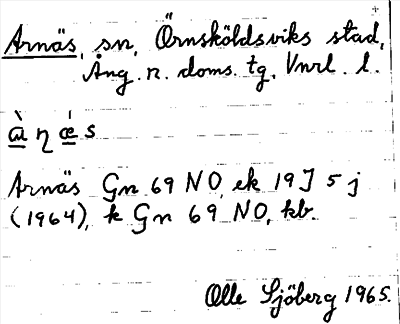 Arnäs, sn, Örnsköldsviks stad,
Ång. n. doms. tg, Vnrl. l.
à̱ η ǽ̱ s
Arnäs Gn 69 NO, ek 19J 5 j
(1964), k Gn 69 NO, kb.
Olle Sjöberg 1965.